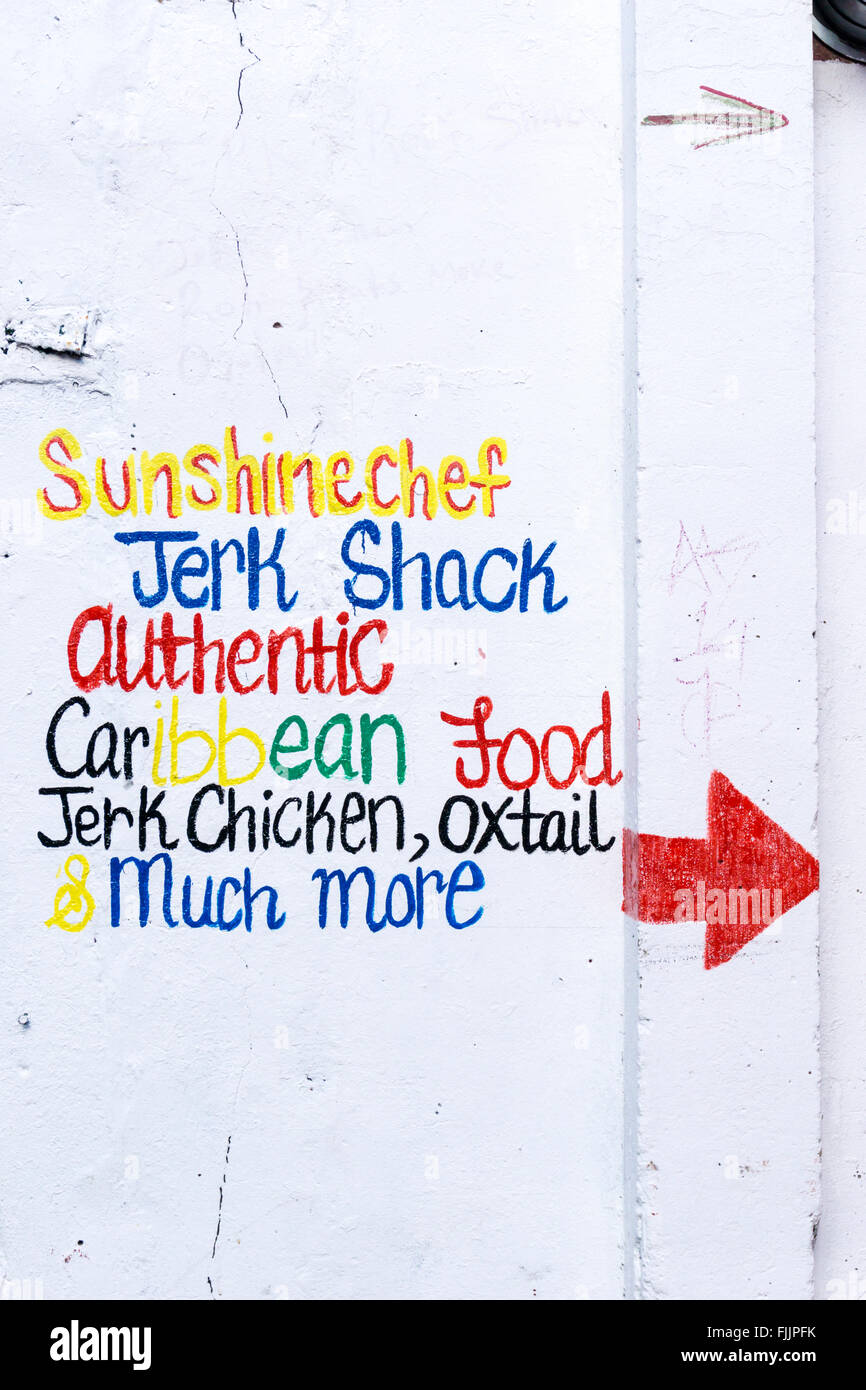 Sunshinechef
Jerk Shack
authentic
Caribbean Food
Jerk Chicken, oxtail
& Much more
alamy
alamy
Image ID: FJJPFK
www.alamy.com